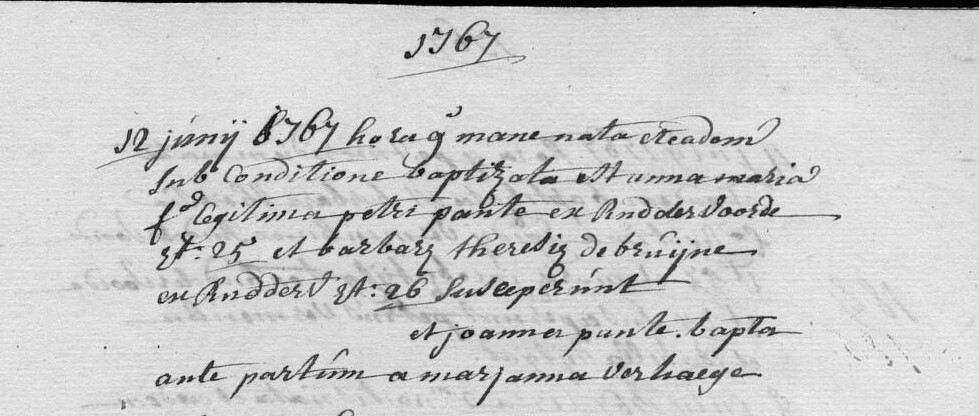 1767
12 junij 1767 hora 9ª mane nata et eadem
sub Conditione baptizata est anna maria
fª legitima petri pante ex Rudder Voorde
æt: 25 et barbaræ theresiæ de bruijne
ex Rudderv æt: 26 susceperunt
et joanna pante. bapta
ante partum a marjanna Verhaege